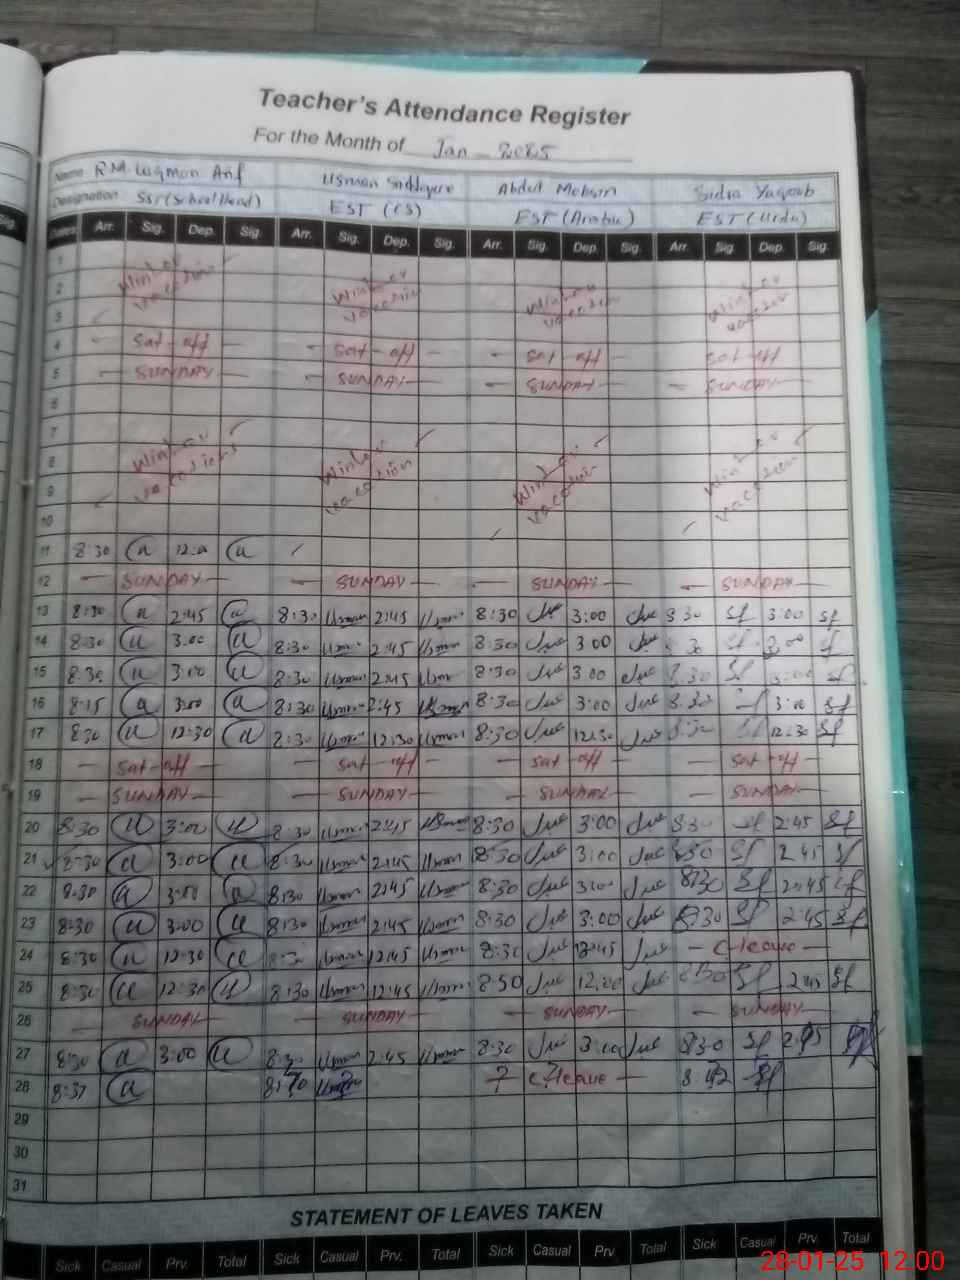 Teacher's Attendance Register
For the Month of Jan - 2025
Name R.M. Luqman Arif Usman Siddique Abdul Mohsin Sidra Yaqoob
Designation SST (School Head) EST (CS) EST (Arabic) EST (Urdu)
Dates Arr. Sig. Dep. Sig. Arr. Sig. Dep. Sig. Arr. Sig. Dep. Sig. Arr. Sig. Dep. Sig.
1
2 Winter Winter Winter Winter
3 vacation vacation vacation vacation
4 - Sat - off - Sat - off - - Sat off - Sat - off
5 - SUNDAY - - SUNDAY - - SUNDAY - - SUNDAY -
6
7
8 Winter Winter Winter Winter
9 vacation vacation vacation vacation
10
11 8:30 a a
12 - SUNDAY - - SUNDAY - - SUNDAY - - SUNDAY -
13 8:30 a 2:45 a 8:30 Usman 2:45 Usman 8:30 3:00 8:30 Sf 3:00 Sf
14 8:30 a 3:00 a 8:30 Usman 2:45 Usman 8:30 3:00 8:30 Sf 3:00 Sf
15 8:30 a 3:00 a 8:30 Usman 2:45 Usman 8:30 3:00 8:30 Sf 3:00 Sf
16 8:15 a 3:00 a 8:30 Usman 2:45 Usman 8:30 3:00 8:30 Sf 3:00 Sf
17 8:30 a 12:30 a 8:30 Usman 12:30 Usman 8:30 12:30 8:30 Sf 12:30 Sf
18 - Sat - off - - Sat - off - - Sat off - - Sat - off -
19 - SUNDAY - - SUNDAY - - SUNDAY - - SUNDAY -
20 8:30 a 3:00 a 8:30 Usman 2:45 Usman 8:30 3:00 8:30 Sf 2:45 Sf
21 8:30 a 3:00 a 8:30 Usman 2:45 Usman 8:30 3:00 8:30 Sf 2:45 Sf
22 8:30 a 3:00 a 8:30 Usman 2:45 Usman 8:30 3:00 8:30 Sf 2:45 Sf
23 8:30 a 3:00 a 8:30 Usman 2:45 Usman 8:30 3:00 8:30 Sf 2:45 Sf
24 8:30 a 12:30 a 8:30 Usman 12:45 Usman 8:30 12:45 - C-leave -
25 8:30 a 12:30 a 8:30 Usman 12:45 Usman 8:50 12:00 8:30 Sf 2:45 Sf
26 - SUNDAY - - SUNDAY - - SUNDAY - - SUNDAY -
27 8:30 a 3:00 a 8:30 Usman 2:45 Usman 8:30 3:00 8:30 Sf 2:45 Sf
28 8:37 a Usman C-leave - 8:42 Sf
29
30
31
STATEMENT OF LEAVES TAKEN
Sick Casual Prv. Total Sick Casual Prv. Total Sick Casual Prv. Total Sick Casual Prv. Total
28-01-25 12:00